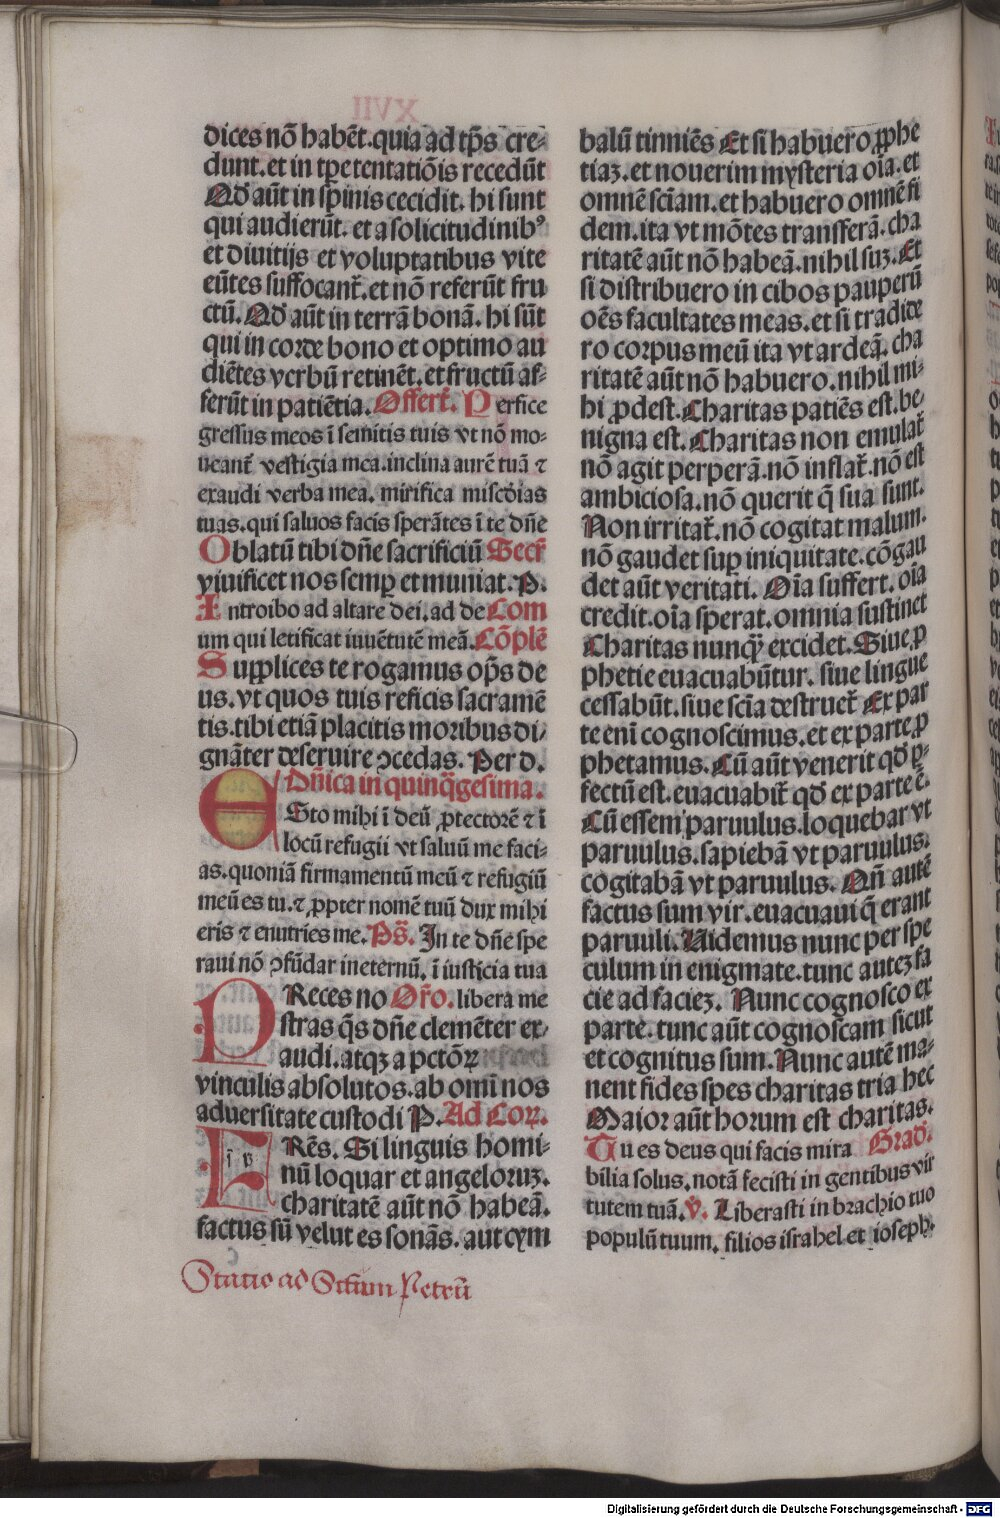 dices nō habēt. quia ad tp̄s cre-
dunt. et in tp̄e tentatiōis recedūt
Qd̄ aūt in spinis cecidit. hi sunt
qui audierūt. et a solicitudinibꝰ
et diuitijs et voluptatibus vite
eūtes suffocant̄. et nō referūt fru
ctū. Qd̄ aūt in terrā bonā. hi sūt
qui in corde bono et optimo au
diētes verbū retinēt. et fructū af-
ferūt in patiētia. Offert̄. Perfice
gressus meos ī semitis tuis vt nō mo-
ueant̄ vestigia mea. inclina aurē tuā ⁊
exaudi verba mea. mirifica misc̄dias
tuas. qui saluos facis sperātes ī te dn̄e
Oblatū tibi dn̄e sacrificiū Secr̄
viuificet nos semꝑ et muniat. P.
Introibo ad altare dei. ad de Com
um qui letificat iuuētutē meā. Cōplē
Supplices te rogamus op̄s de
us. vt quos tuis reficis sacramē
tis. tibi etiā placitis moribus di-
gnāter deseruire ꝯcedas. Per d.
Dn̄ica in quinq̄gesima.
ESto mihi ī deū ꝓtectorē ⁊ ī
locū refugii vt saluū me faci-
as. quoniā firmamentū meū ⁊ refugiū
meū es tu. ⁊ ꝓpter nomē tuū dux mihi
eris ⁊ enutries me. Ps̄. In te dn̄e spe
raui nō ꝯfūdar in eternū. ī iusticia tua
PReces no Or̄o. libera me
stras q̄s dn̄e clemēter ex-
audi. atqꝫ a pctōꝝ
vinculis absolutos. ab omī nos
aduersitate custodi P. Ad Coꝝ.
FRēs. Si linguis homi-
nū loquar et angeloruꝫ.
charitatē aūt nō habeā.
factus sū velut es sonās. aut cym
Statio ad Sctum Petrū
balū tinniēs Et si habuero ꝓphe
tiaꝫ. et nouerim mysteria oīa. et
omnē sciam. et habuero omnē fi
dem. ita vt mōtes transferā. cha
ritatē aūt nō habeā. nihil suꝫ. Et
si distribuero in cibos pauperū
oēs facultates meas. et si tradide
ro corpus meū ita vt ardeā. cha
ritatē aūt nō habuero. nihil mi-
hi ꝓdest. Charitas patiēs est. be-
nigna est. Charitas non emulat̄
nō agit perperā. nō inflat̄. nō est
ambiciosa. nō querit q̄ sua sunt.
Non irritat̄. nō cogitat malum.
nō gaudet suꝑ iniquitate. cōgau
det aūt veritati. Oīa suffert. oīa
credit. oīa sperat. omnia sustinet
Charitas nunqꝫ̄ excidet. Siue ꝓ
phetie euacuabūtur. siue lingue
cessabūt. siue scīa destruet̄ Ex par
te enī cognoscimus. et ex parte ꝓ
phetamus. Cū aūt venerit qd̄ ꝑ-
fectū est. euacuabit̄ qd̄ ex parte ē.
Cū essem paruulus. loquebar vt
paruulus. sapiebā vt paruulus.
cogitabā vt paruulus. Qn̄ autē
factus sum vir. euacuaui q̄ erant
paruuli. Videmus nunc per spe
culum in enigmate. tunc auteꝫ fa
cie ad facieꝫ. Nunc cognosco ex
parte. tunc aūt cognoscam sicut
et cognitus sum. Nunc autē ma-
nent fides spes charitas tria hec
Maior aūt horum est charitas.
Tu es deus qui facis mira Grad̄.
bilia solus. notā fecisti in gentibus vir
tutem tuā. ℣. Liberasti in brachio tuo
populū tuum. filios israhel et ioseph.
Digitalisierung gefördert durch die Deutsche Forschungsgemeinschaft - DFG